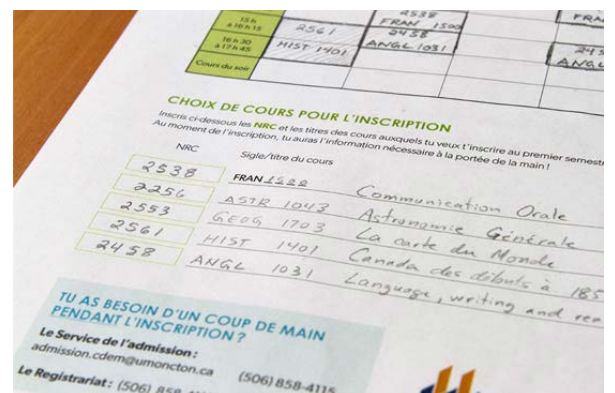 15 h
à 16 h 15
2561
2538
FRAN 1500
FRA
16 h 30
à 17 h 45
HIST 1401
2458
ANGL 1031
245
ANGL
Cours du soir
CHOIX DE COURS POUR L'INSCRIPTION
Inscris ci-dessous les NRC et les titres des cours auxquels tu veux t'inscrire au premier semest
Au moment de l'inscription, tu auras l'information nécessaire à la portée de la main !
NRC Sigle/titre du cours
2538 FRAN 1500 Communication Orale
2256 ASTR 1043 Astronomie Générale
2553 GEOG 1703 La carte du Monde
2561 HIST 1401 Canada des débuts à 185
2458 ANGL 1031 Language, writing and rea
TU AS BESOIN D'UN COUP DE MAIN
PENDANT L'INSCRIPTION ?
Le Service de l'admission :
admission.cdem@umoncton.ca (506) 858-4115
Le Registrariat : (506) 858